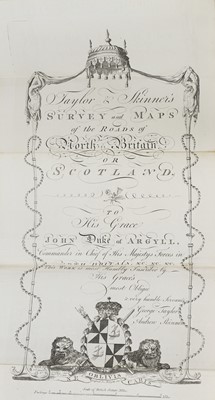 Taylor & Skinner's
SURVEY and MAPS
of the ROADS of
North Britain
OR
SCOTLAND.
TO
His Grace
JOHN DUKE of ARGYLL,
Commander in Chief of His Majestys Forces in
His Grace's
most Oblig'd
& very humble Servants
George Taylor
Andrew Skinner